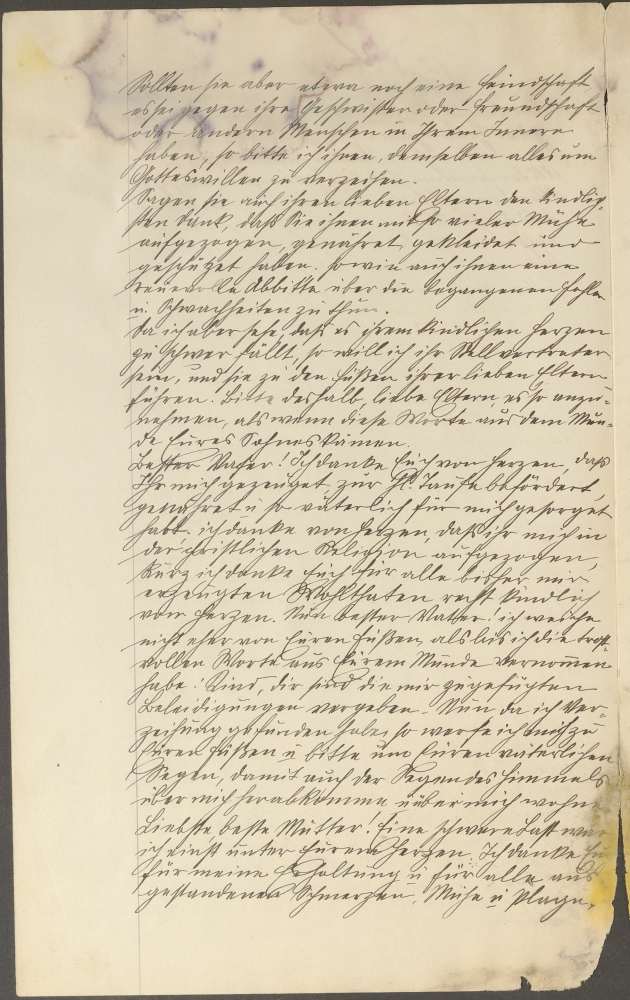 Sollten sie aber etwa noch eine Feindschaft
es sei gegen ihre Geschwister oder Freundschaft
oder andern Menschen in Ihrem Innern
haben, so bitte ich ihnen, demselben alles um
Gotteswillen zu verzeihen.
Sagen sie auch ihren lieben Eltern den kindlig-
sten Dank, daß Sie ihnen mit so vieler Mühe
aufgezogen, genähret, gekleidet und
geschützet haben. sowie auch ihnen eine
reuevolle Abbitte über die begangenen Fehler
u. Schwachheiten zu thun.
Da ich aber sehe, daß es ihrem kindlichen Herzen
zu schwer fällt, so will ich ihr Stellvertreter
sein, und sie zu den Füßen ihrer lieben Eltern
führen. Bitte deshalb, liebe Eltern es so anzu-
nehmen, als wenn diese Worte aus dem Mun-
de Eures Sohnes kämen.
Bester Vater! Ich danke Euch von Herzen, daß
Ihr mich gezeuget zur Hl. Taufe befördert,
genähret u so väterlich für mich gesorget
habt. ich danke von Herzen, daß ihr mich in
der christlichen Religion aufgezogen,
Kurz ich danke Euch für alle bisher mir
erzeugten Wohlthaten recht kindlich
von Herzen. Nun bester Vatter! ich weiche
nicht eher von Euren Füßen, als bis ich die trost-
vollen Worte aus Eurem Munde vernommen
habe: Kind, dir sind die mir zugefügten
Beleidigungen vergeben. Nun da ich Ver-
zeihung gefunden habe, so werfe ich mich zu
Euren Füßen u bitte um Euren väterlichen
Segen, damit auch der Segen des Himmels
über mich herabkomme u über mich wohne
Liebste beste Mutter! Eine schwere Last war
ich einst unter Eurem Herzen. Ich danke Eu
für meine Erhaltung u für alle aus-
gestandenen Schmerzen, Mühe u Plage,